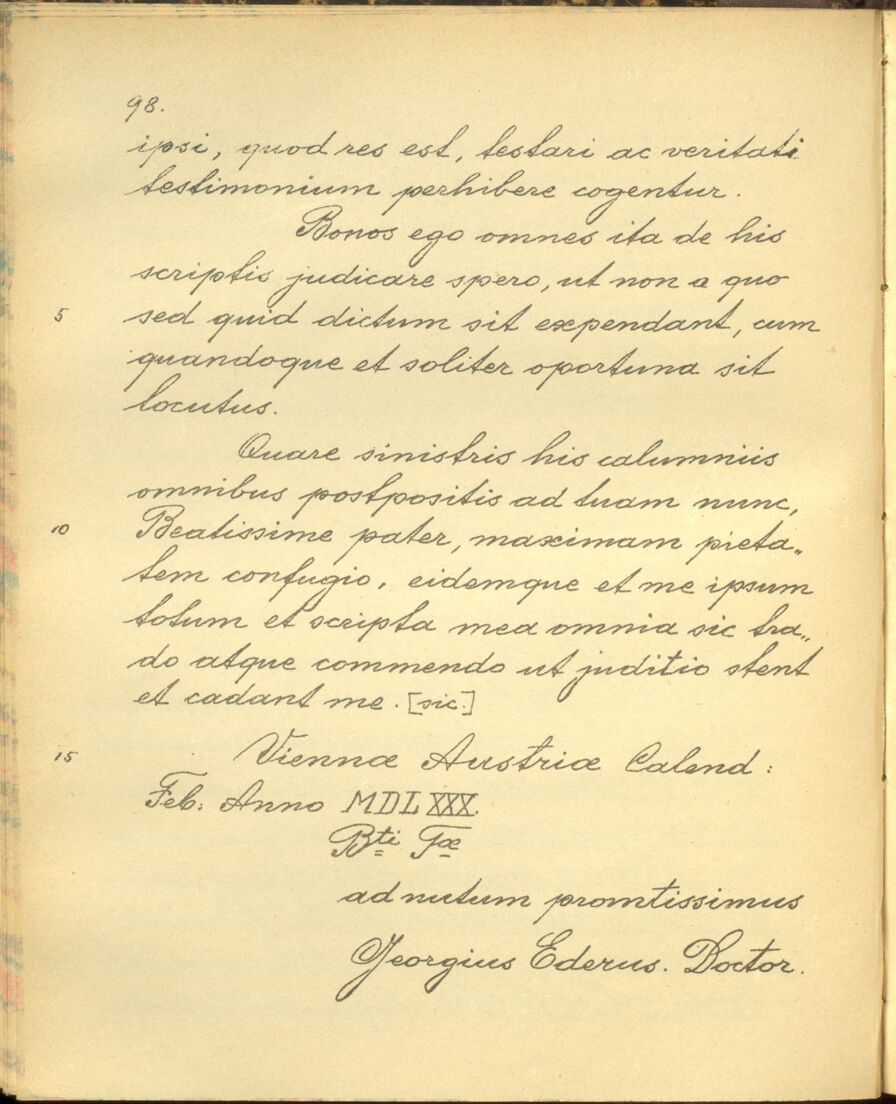 98.
ipsi, quod res est, testari ac veritati
testimonium perhibere cogentur.
Bonos ego omnes ita de his
scriptis judicare spero, ut non a quo
5 sed quid dictum sit expendant, cum
quandoque et soliter oportuna sit
locutus.
Quare sinistris his calumniis
omnibus postpositis ad tuam nunc,
10 Beatissime pater, maximam pieta„
tem confugio, eidemque et me ipsum
totum et scripta mea omnia sic tra„
do atque commendo ut juditio stent
et cadant me. [sic.]
15 Viennæ Austriæ Calend:
Feb: Anno MDLXXX.
Bti Tæ
ad nutum promtissimus
Georgius Ederus. Doctor.